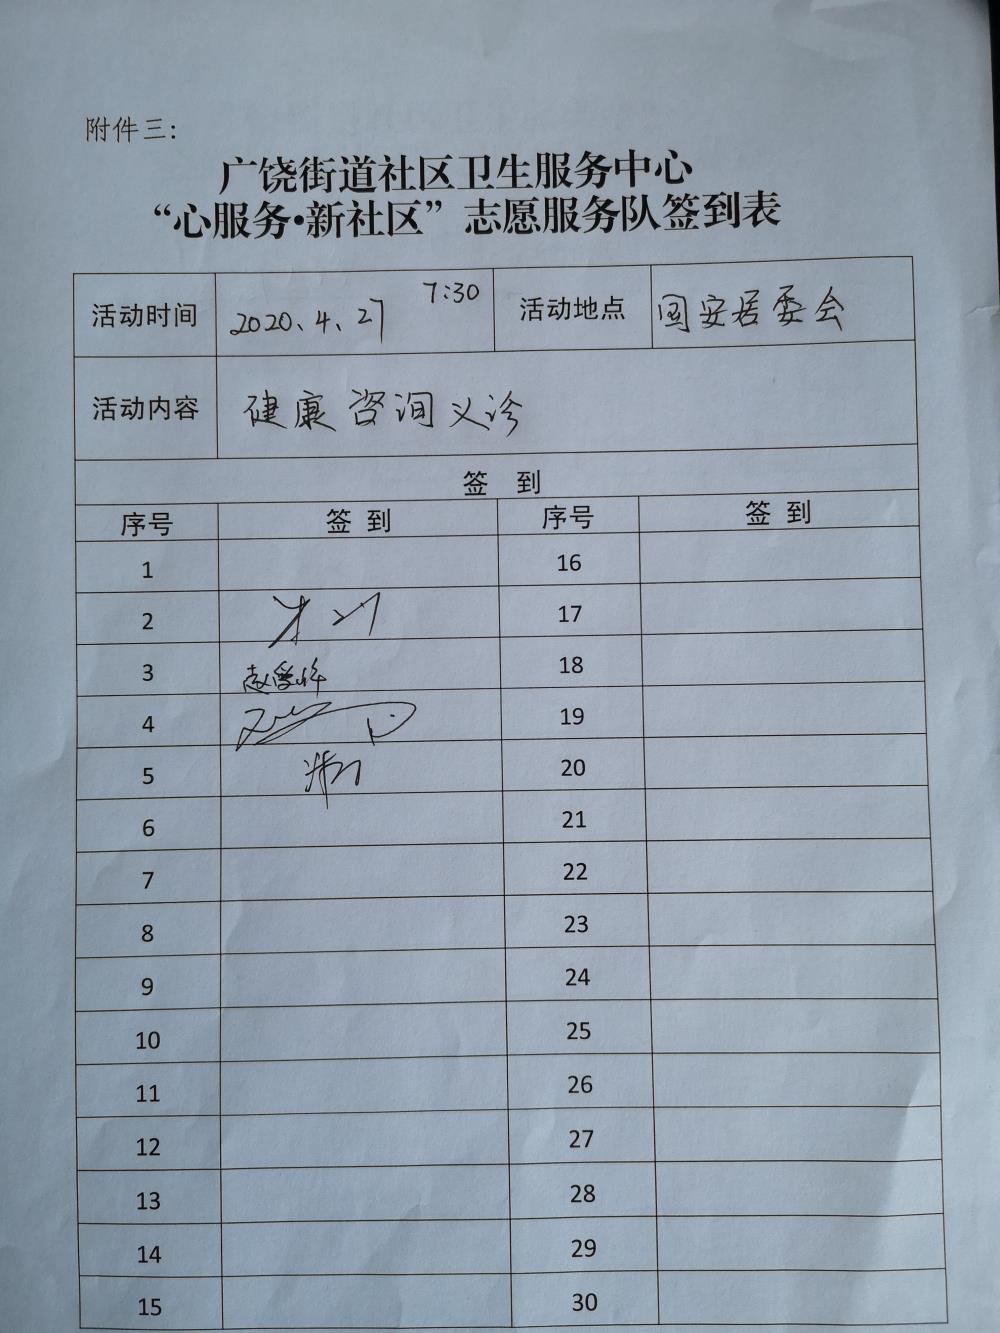 附件三:
广饶街道社区卫生服务中心
“心服务•新社区”志愿服务队签到表
活动时间 2020、4、27 7:30 活动地点 国安居委会
活动内容 健康咨询义诊
签 到
序号 签 到 序号 签 到
1 16
2 17
3 18
4 19
5 20
6 21
7 22
8 23
9 24
10 25
11 26
12 27
13 28
14 29
15 30